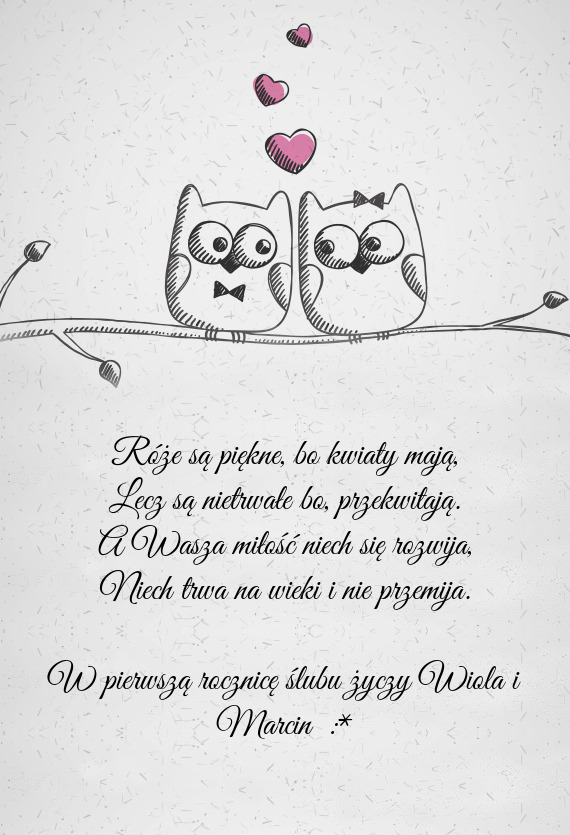 Róże są piękne, bo kwiaty mają,
Lecz są nietrwałe bo, przekwitają.
A Wasza miłość niech się rozwija,
Niech trwa na wieki i nie przemija.
W pierwszą rocznicę ślubu życzy Wiola i
Marcin :*